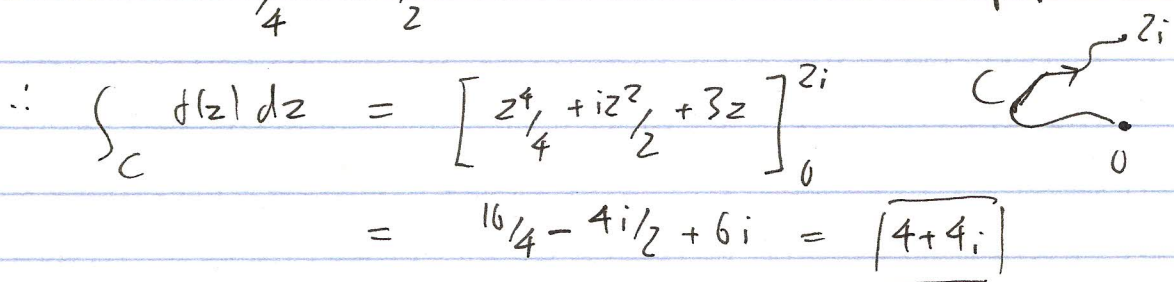 /4 2
∴ ∫_C f(z) dz = [ z⁴/4 + iz²/2 + 3z ]₀^{2i}
C 2i 0
= 16/4 - 4i/2 + 6i = 4+4i